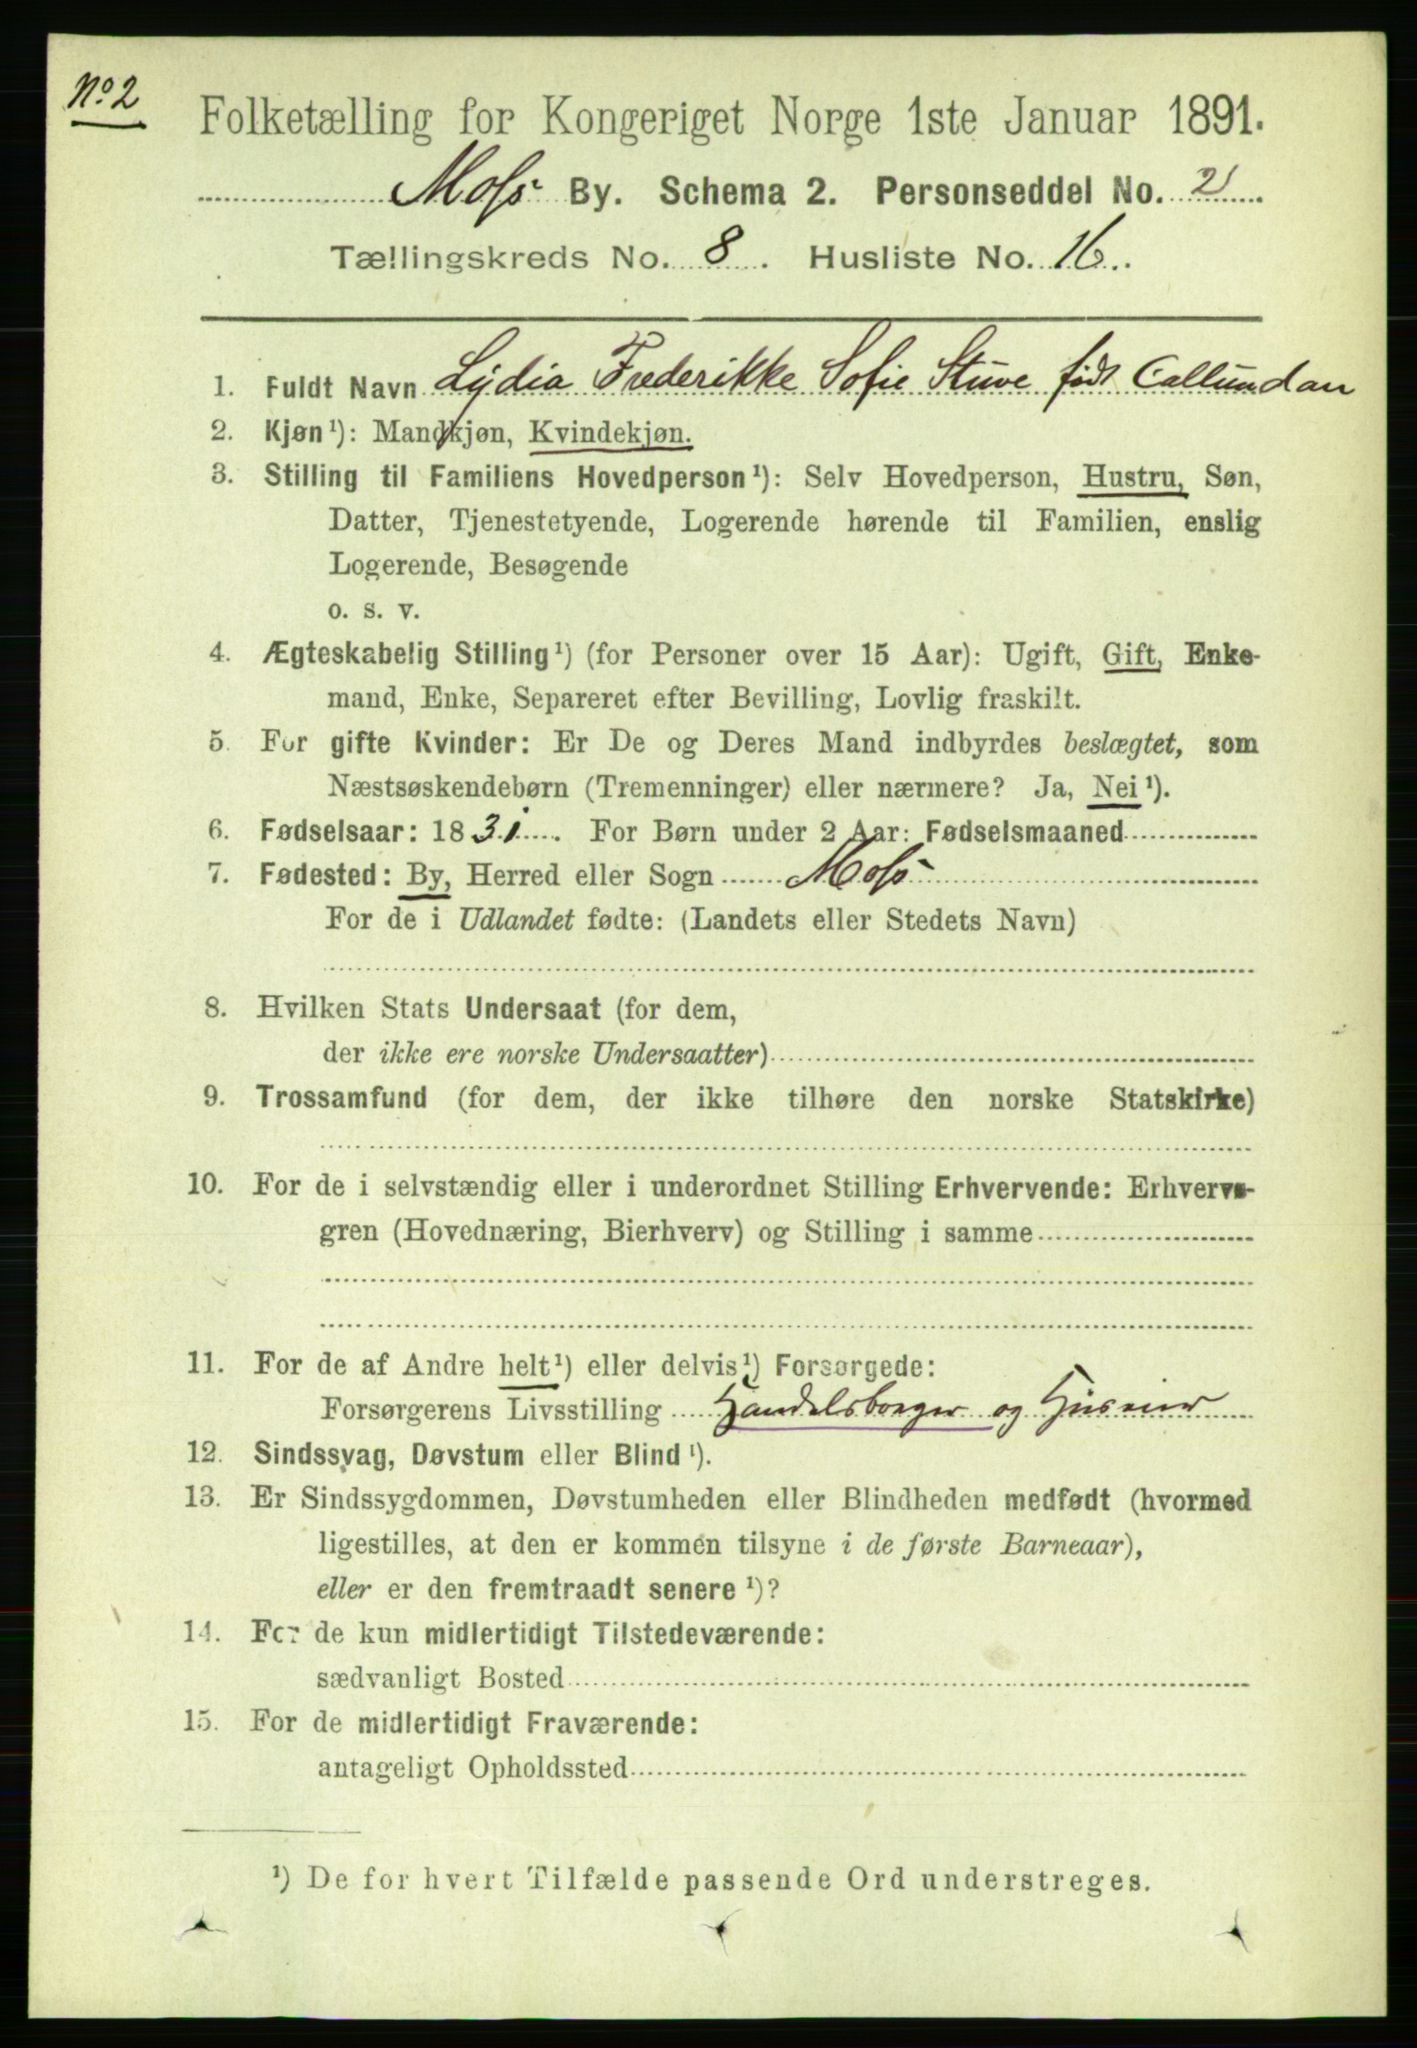 No 2
Folketælling for Kongeriget Norge 1ste Januar 1891.
Moss By. Schema 2. Personseddel No. 2
Tællingskreds No. 8. Husliste No. 16.
1. Fuldt Navn Lydia Frederikke Sofie Stuve født Callundan
2. Kjøn¹): Mandkjøn, Kvindekjøn.
3. Stilling til Familiens Hovedperson¹): Selv Hovedperson, Hustru, Søn,
Datter, Tjenestetyende, Logerende hørende til Familien, enslig
Logerende, Besøgende
o. s. v.
4. Ægteskabelig Stilling¹) (for Personer over 15 Aar): Ugift, Gift, Enke-
mand, Enke, Separeret efter Bevilling, Lovlig fraskilt.
5. For gifte Kvinder: Er De og Deres Mand indbyrdes beslægtet, som
Næstsøskendebørn (Tremenninger) eller nærmere? Ja, Nei¹).
6. Fødselsaar: 1831. For Børn under 2 Aar: Fødselsmaaned
7. Fødested: By, Herred eller Sogn Moss
For de i Udlandet fødte: (Landets eller Stedets Navn)
8. Hvilken Stats Undersaat (for dem,
der ikke ere norske Undersaatter)
9. Trossamfund (for dem, der ikke tilhøre den norske Statskirke)
10. For de i selvstændig eller i underordnet Stilling Erhvervende: Erhvervs-
gren (Hovednæring, Bierhverv) og Stilling i samme
11. For de af Andre helt¹) eller delvis¹) Forsørgede:
Forsørgerens Livsstilling Handelsborger og Huseier
12. Sindssvag, Døvstum eller Blind¹).
13. Er Sindssygdommen, Døvstumheden eller Blindheden medfødt (hvormed
ligestilles, at den er kommen tilsyne i de første Barneaar),
eller er den fremtraadt senere¹)?
14. For de kun midlertidigt Tilstedeværende:
sædvanligt Bosted
15. For de midlertidigt Fraværende:
antageligt Opholdssted
¹) De for hvert Tilfælde passende Ord understreges.